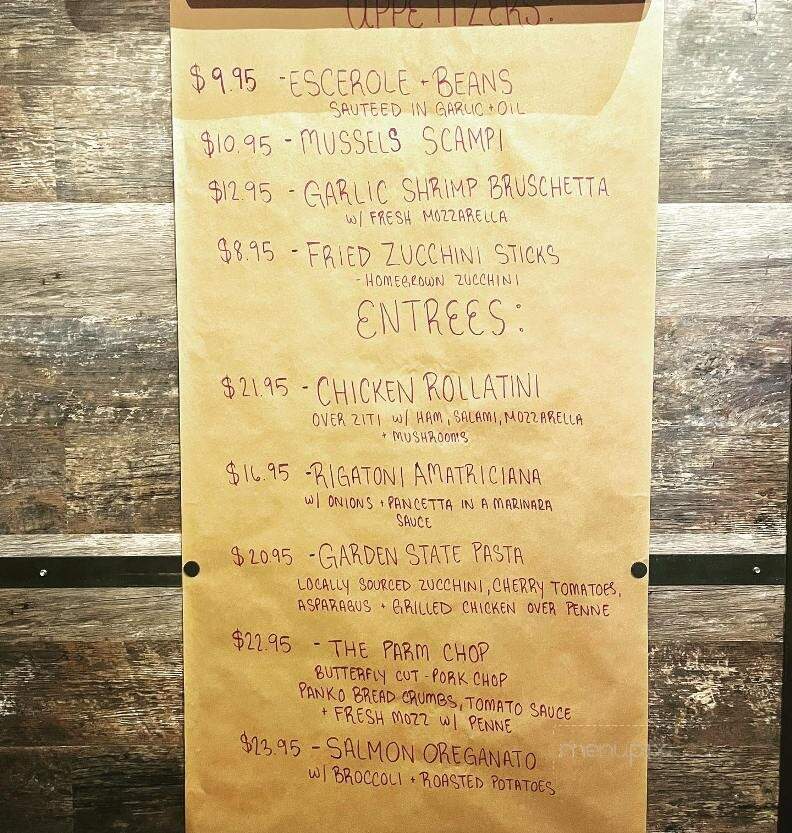 APPETIZERS:
$9.95 - ESCEROLE + BEANS
SAUTEED IN GARLIC + OIL
$10.95 - MUSSELS SCAMPI
$12.95 - GARLIC SHRIMP BRUSCHETTA
W/ FRESH MOZZARELLA
$8.95 - FRIED ZUCCHINI STICKS
- HOMEGROWN ZUCCHINI
ENTREES:
$21.95 - CHICKEN ROLLATINI
OVER ZITI W/ HAM, SALAMI, MOZZARELLA
+ MUSHROOMS
$16.95 - RIGATONI AMATRICIANA
W/ ONIONS + PANCETTA IN A MARINARA
SAUCE
$20.95 - GARDEN STATE PASTA
LOCALLY SOURCED ZUCCHINI, CHERRY TOMATOES,
ASPARAGUS + GRILLED CHICKEN OVER PENNE
$22.95 - THE PARM CHOP
BUTTERFLY CUT - PORK CHOP
PANKO BREAD CRUMBS, TOMATO SAUCE
+ FRESH MOZZ W/ PENNE
$23.95 - SALMON OREGANATO
W/ BROCCOLI + ROASTED POTATOES